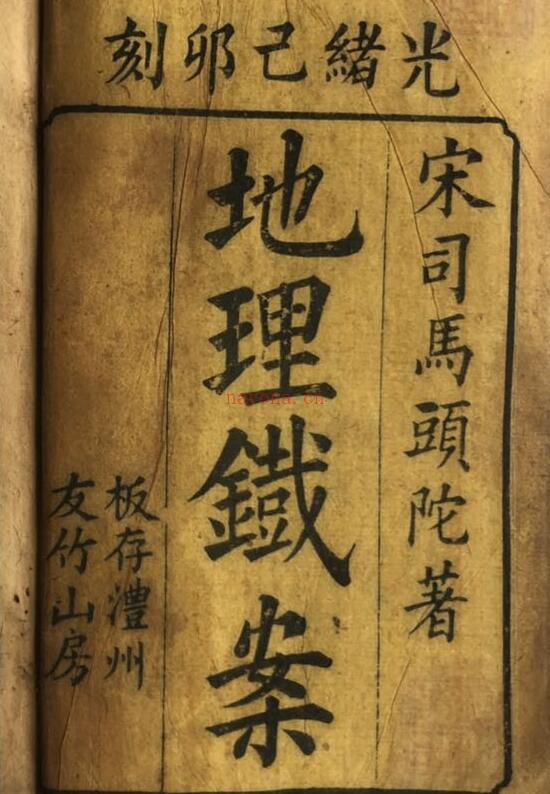 光緒己卯刻
宋司馬頭陀著
地理鐵案
板存澧州
友竹山房
nayona.cn